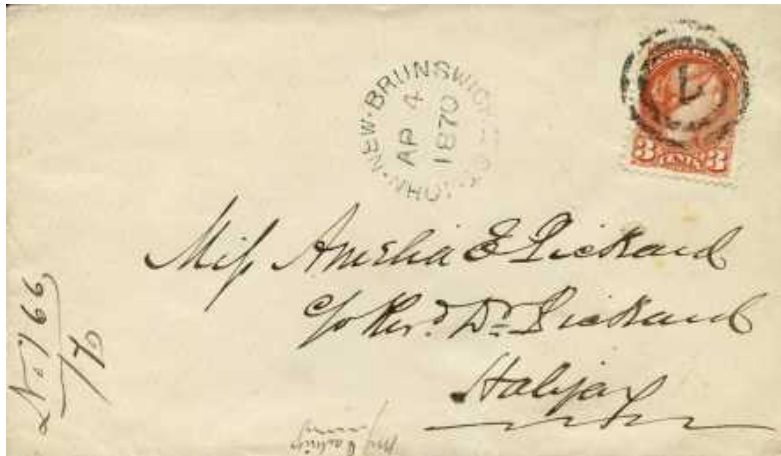 ST. JOHN · NEW · BRUNSWICK
AP 4
1870
7
3 CENTS 3
Miss Amelia E Pickard
c/o Rev.d Dr Pickard
Halifax
No 166
/70